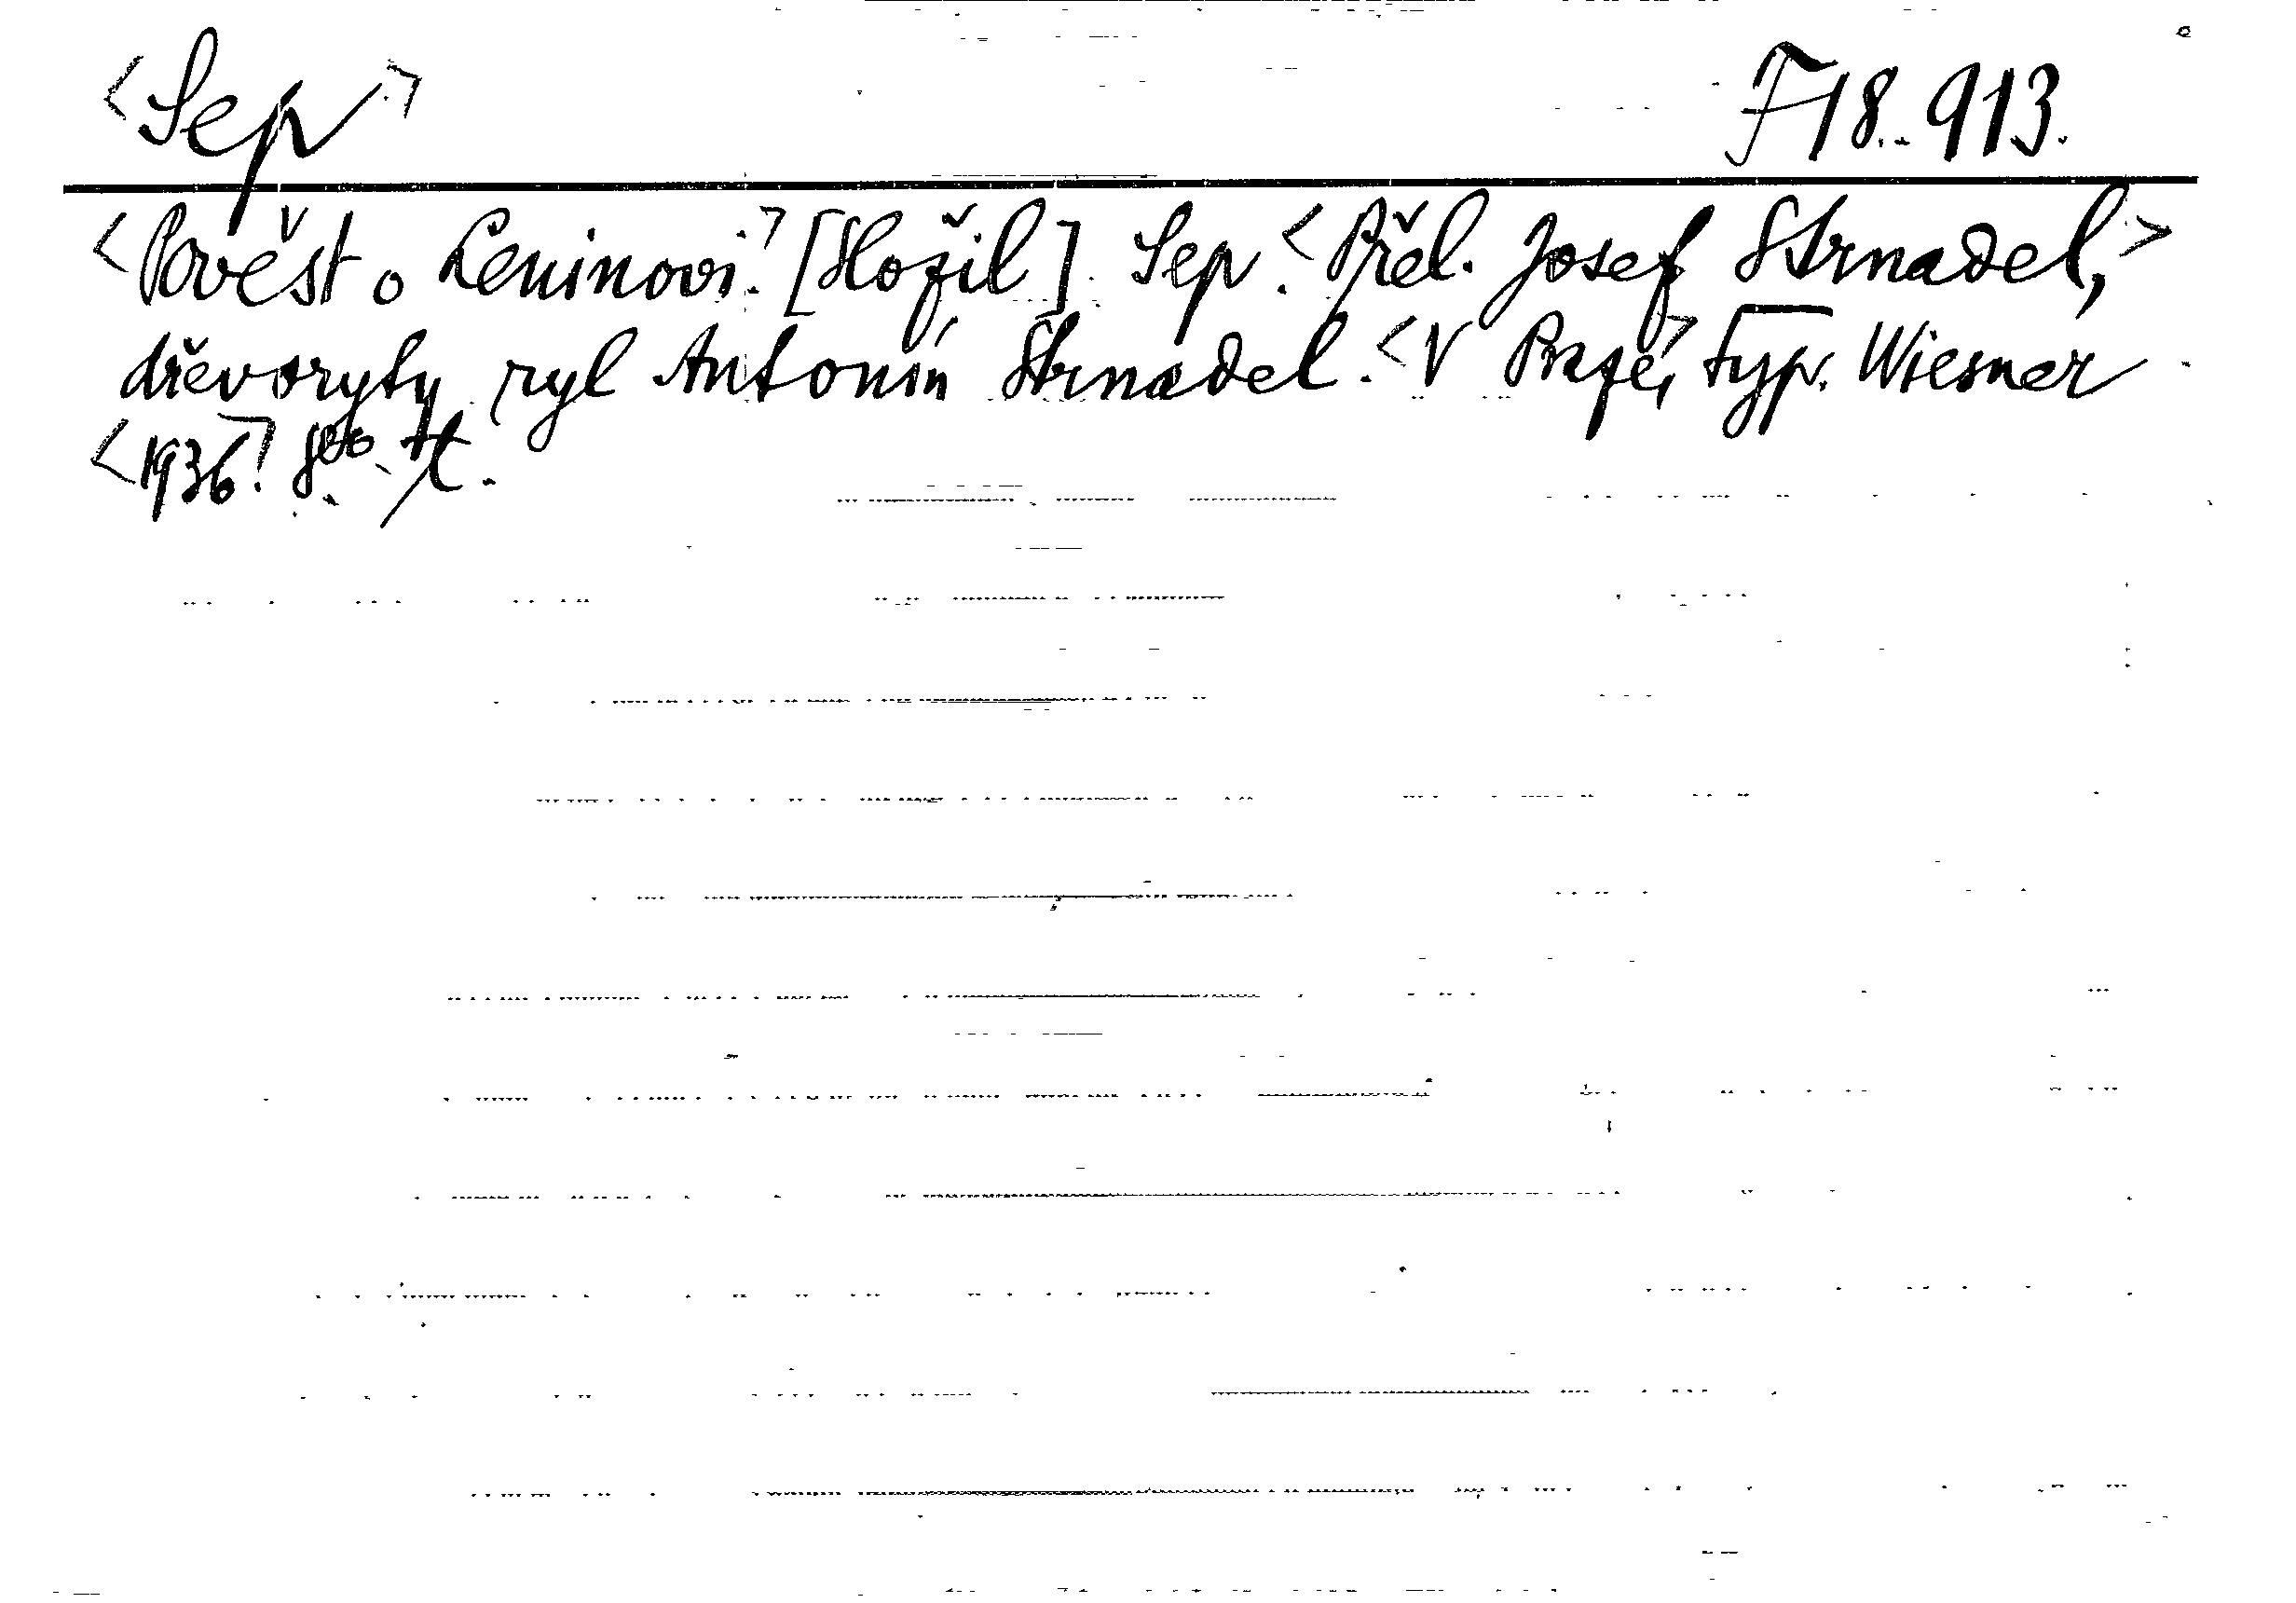 <Sep> F 18.913.
<Pověst o Leninovi.> [Složil]. Sep. <Přel. Josef Strnadel,>
dřevoryty ryl Antonín Strnadel. <V Praze,> typ. Wiesner
<1936>. 8°.